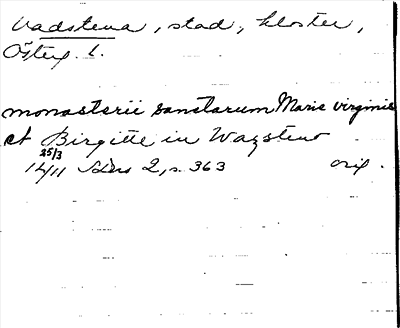 Vadstena, stad, kloster,
Österg. l.
monasterii sanctarum Marie virginis
et Birgitte in Wazsten
25/3
1411 SDns 2, s. 363 orig.